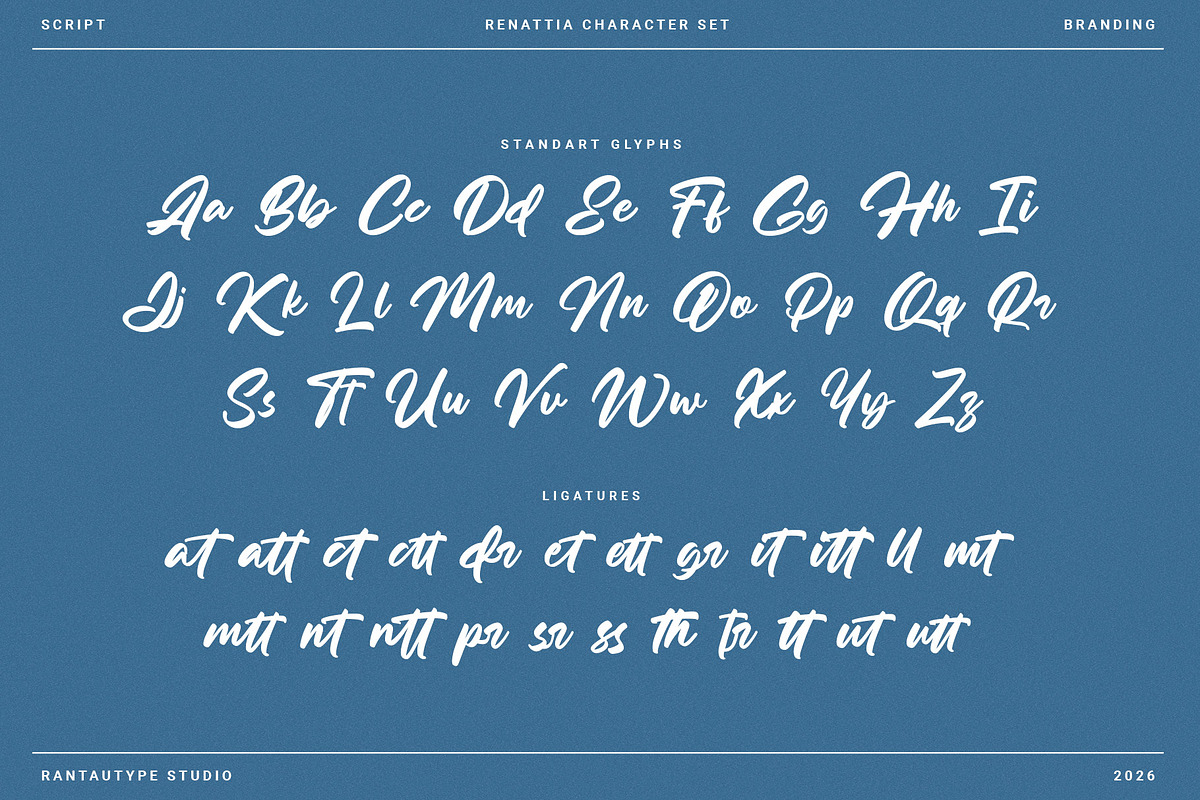 SCRIPT RENATTIA CHARACTER SET BRANDING
STANDART GLYPHS
Aa Bb Cc Dd Ee Ff Gg Hh Ii
Jj Kk Ll Mm Nn Oo Pp Qq Rr
Ss Tt Uu Vv Ww Xx Yy Zz
LIGATURES
at att ct ctt dr et ett gr it itt ll mt
mtt nt ntt pr sr ss th tr tt ut utt
RANTAUTYPE STUDIO 2026